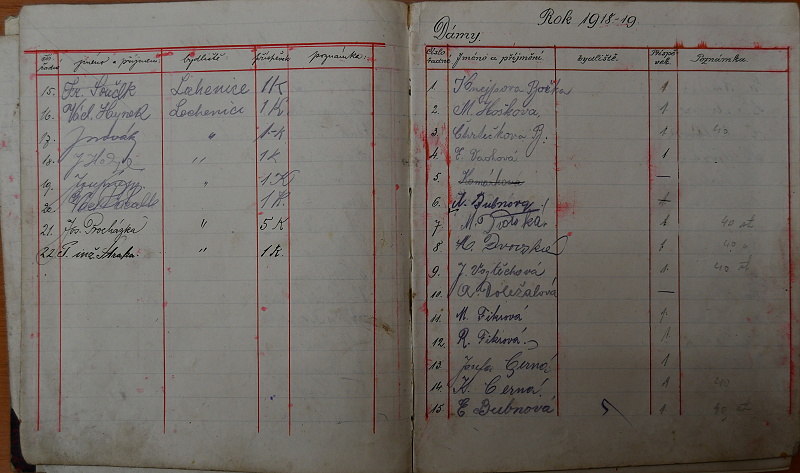 jméno a příjmení. bydliště. příspěvek poznámka:
15. Fr. Součk Lichenice 1K
16. Václ. Hynek Lochenice 1 K.
17. J. Novák " 1 K
18. J. " 1 K
19. " 1 K
20. 1 K.
21. Jos. Procházka " 5 K
22. inž. Straka. " 1 K.
Rok 1918-19.
Dámy.
Číslo řadné Jméno a příjmění bydliště. Příspěvek Poznámka
1. Božka 1
2. M. Hošková, 1
3. 1 40
4. E. Vachová 1
5. Komárková —
6. A. Dubnová 1
7. M. 1 40
8. M. Dvorská 1 40 "
9. J. Vojtěchová 1 40
10. A. Doležalová —
11. M. Fikrová 1
12. R. Fikrová. 1
13. Josefa Černá 1
14. K. Černá. 1 40
15 E Dubnová 1 40